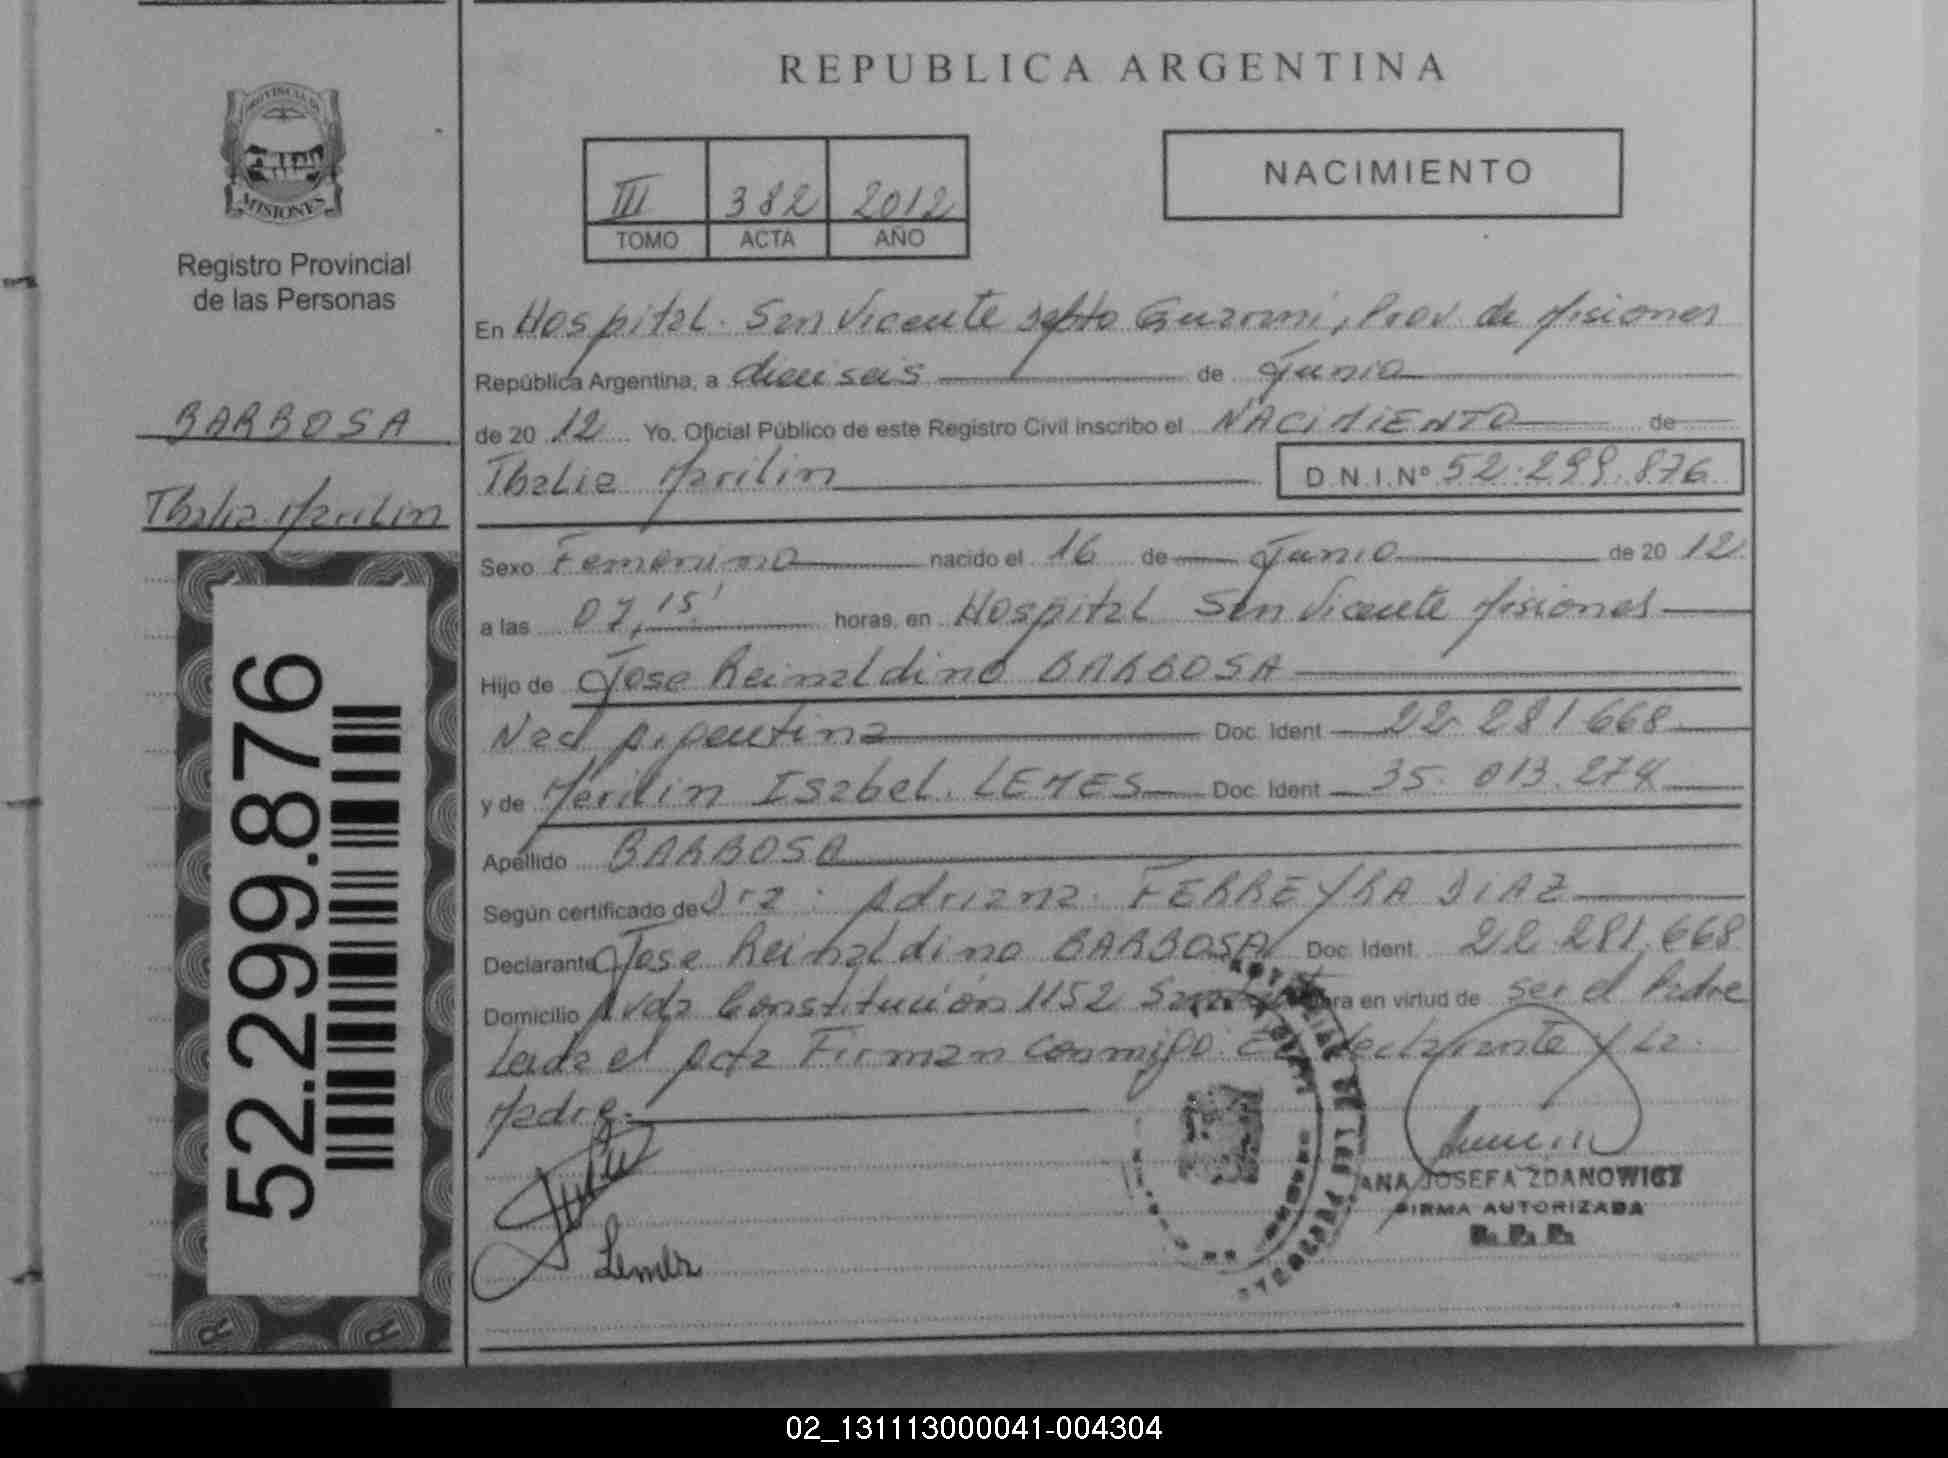 REPUBLICA ARGENTINA
PROVINCIA DE
MISIONES
Registro Provincial
de las Personas
BARBOSA
Thalia Marilin
52.299.876
III 382 2012
TOMO ACTA AÑO
NACIMIENTO
En Hospital. San Vicente Depto Guarani, Prov. de Misiones
República Argentina, a dieciseis de Junio
de 20 12 Yo. Oficial Público de este Registro Civil inscribo el NACIMIENTO de
Thalia Marilin D.N.I.Nº 52.299.876
Sexo Femenino nacido el 16 de Junio de 20 12
a las 07,15' horas, en Hospital San Vicente Misiones
Hijo de Jose Reinaldino BARBOSA
Nac Argentina Doc. Ident 22.281.668
y de Marilin Isabel. LEMES Doc. Ident 35.013.274
Apellido BARBOSA
Según certificado de Dra: Adriana. FERREYRA DIAZ
Declarante Jose Reinaldino BARBOSA Doc. Ident. 22.281.668
Domicilio Avda Constitución 1152 en virtud de ser el Padre
Leida el Acta Firman conmigo El declarante y La
Madre.
Lemes
ANA JOSEFA ZDANOWICZ
FIRMA AUTORIZADA
R. P. P.
02_131113000041-004304